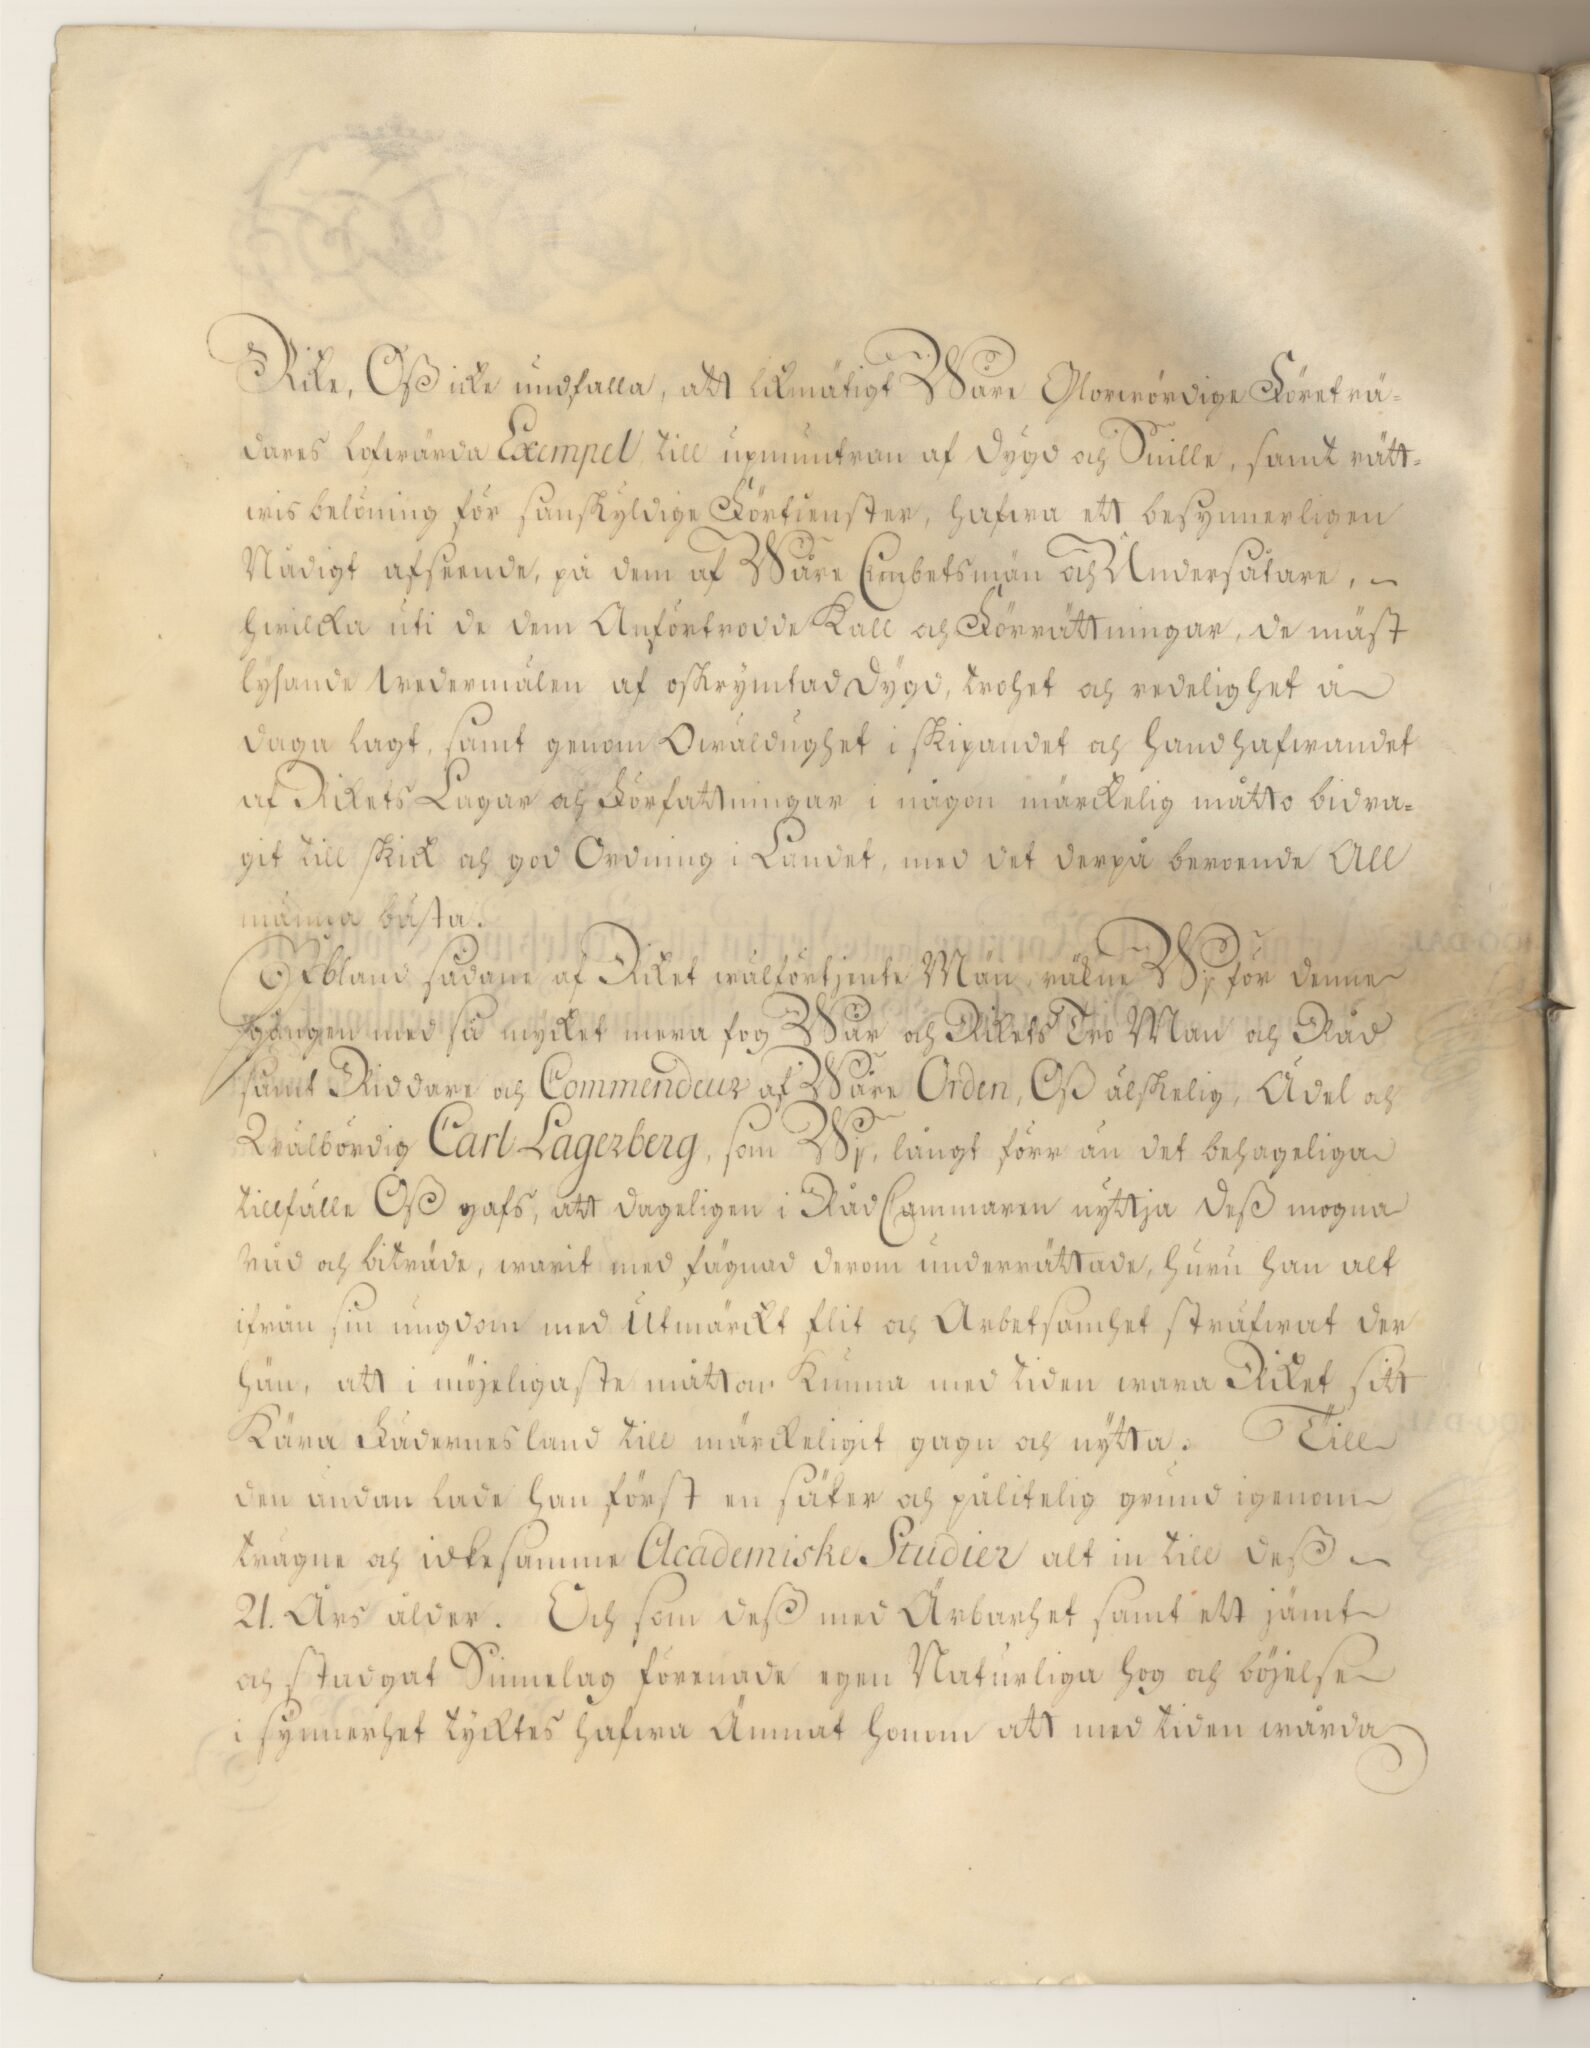 Rike, Oß icke undfalla, att likmätigt Wåre Glorwördige Företrä-
dares lofwärda Exempel till upmuntran af dygd och Snille, samt rätt-
wis belöning för sanskyldige Förtienster, hafwa ett besynnerligen
Nådigt afseende, på dem af Wåre Embetsmän och Undersåtare,
hwilcka uti de dem Anförtrodde Kall och Förrättningar, de mäst
lysande wedermälen af oskrymtad Dygd, trohet och redelighet å
daga lagt, samt genom Owäldughet i skipandet och handhafwandet
af Rikets Lagar och Författningar i någon märckelig måtto bidra-
git till skick och god Ordning i Landet, med det derpå beroende All
männa bästa.
Ibland sådane af Riket wälförtjente Män, räkne Wj för denne
gången med så mycket mera fog Wår och Rikets Tro Man och Råd
samt Riddare och Commendeur af Wåre Orden, Oß älskelig, Ädel och
Wälbördig Carl Lagerberg, som Wj, långt förr än det behageliga
tillfälle Oß gafs, att dageligen i Råd Cammaren nyttja deß mogna
råd och biträde, warit med fägnad derom underrättade, huru han alt
ifrån sin ungdom med Utmärckt flit och Arbetsamhet sträfwat der
hän, att i möjeligaste måtton kunna med tiden wara Riket sitt
Kära Fädernesland till märckeligit gagn och nytta. Till
den ändan lade han först en säker och pålitelig grund igenom
trägne och idkesamme Academiske Studier alt in till deß
21. Års ålder. Och som deß med Ärbarhet samt ett jämt
och stadgat Sinnelag förenade egen Naturliga hog och böjelse
i synnerhet tycktes hafwa Ämnat honom att med tiden wårda